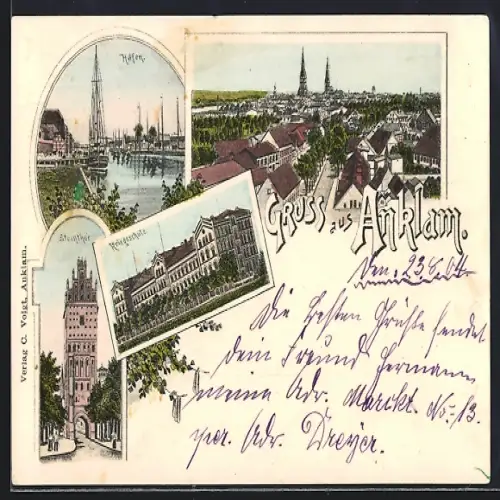 Hafen.
Steinthor
Kriegsschule
Gruss aus Anklam.
Verlag C. Voigt, Anklam.
den 23.8.04
Die besten Grüße sendet
dein Freund Hermann
meine Adr. Marckt. No. 13.
per. Adr. Dreyer.